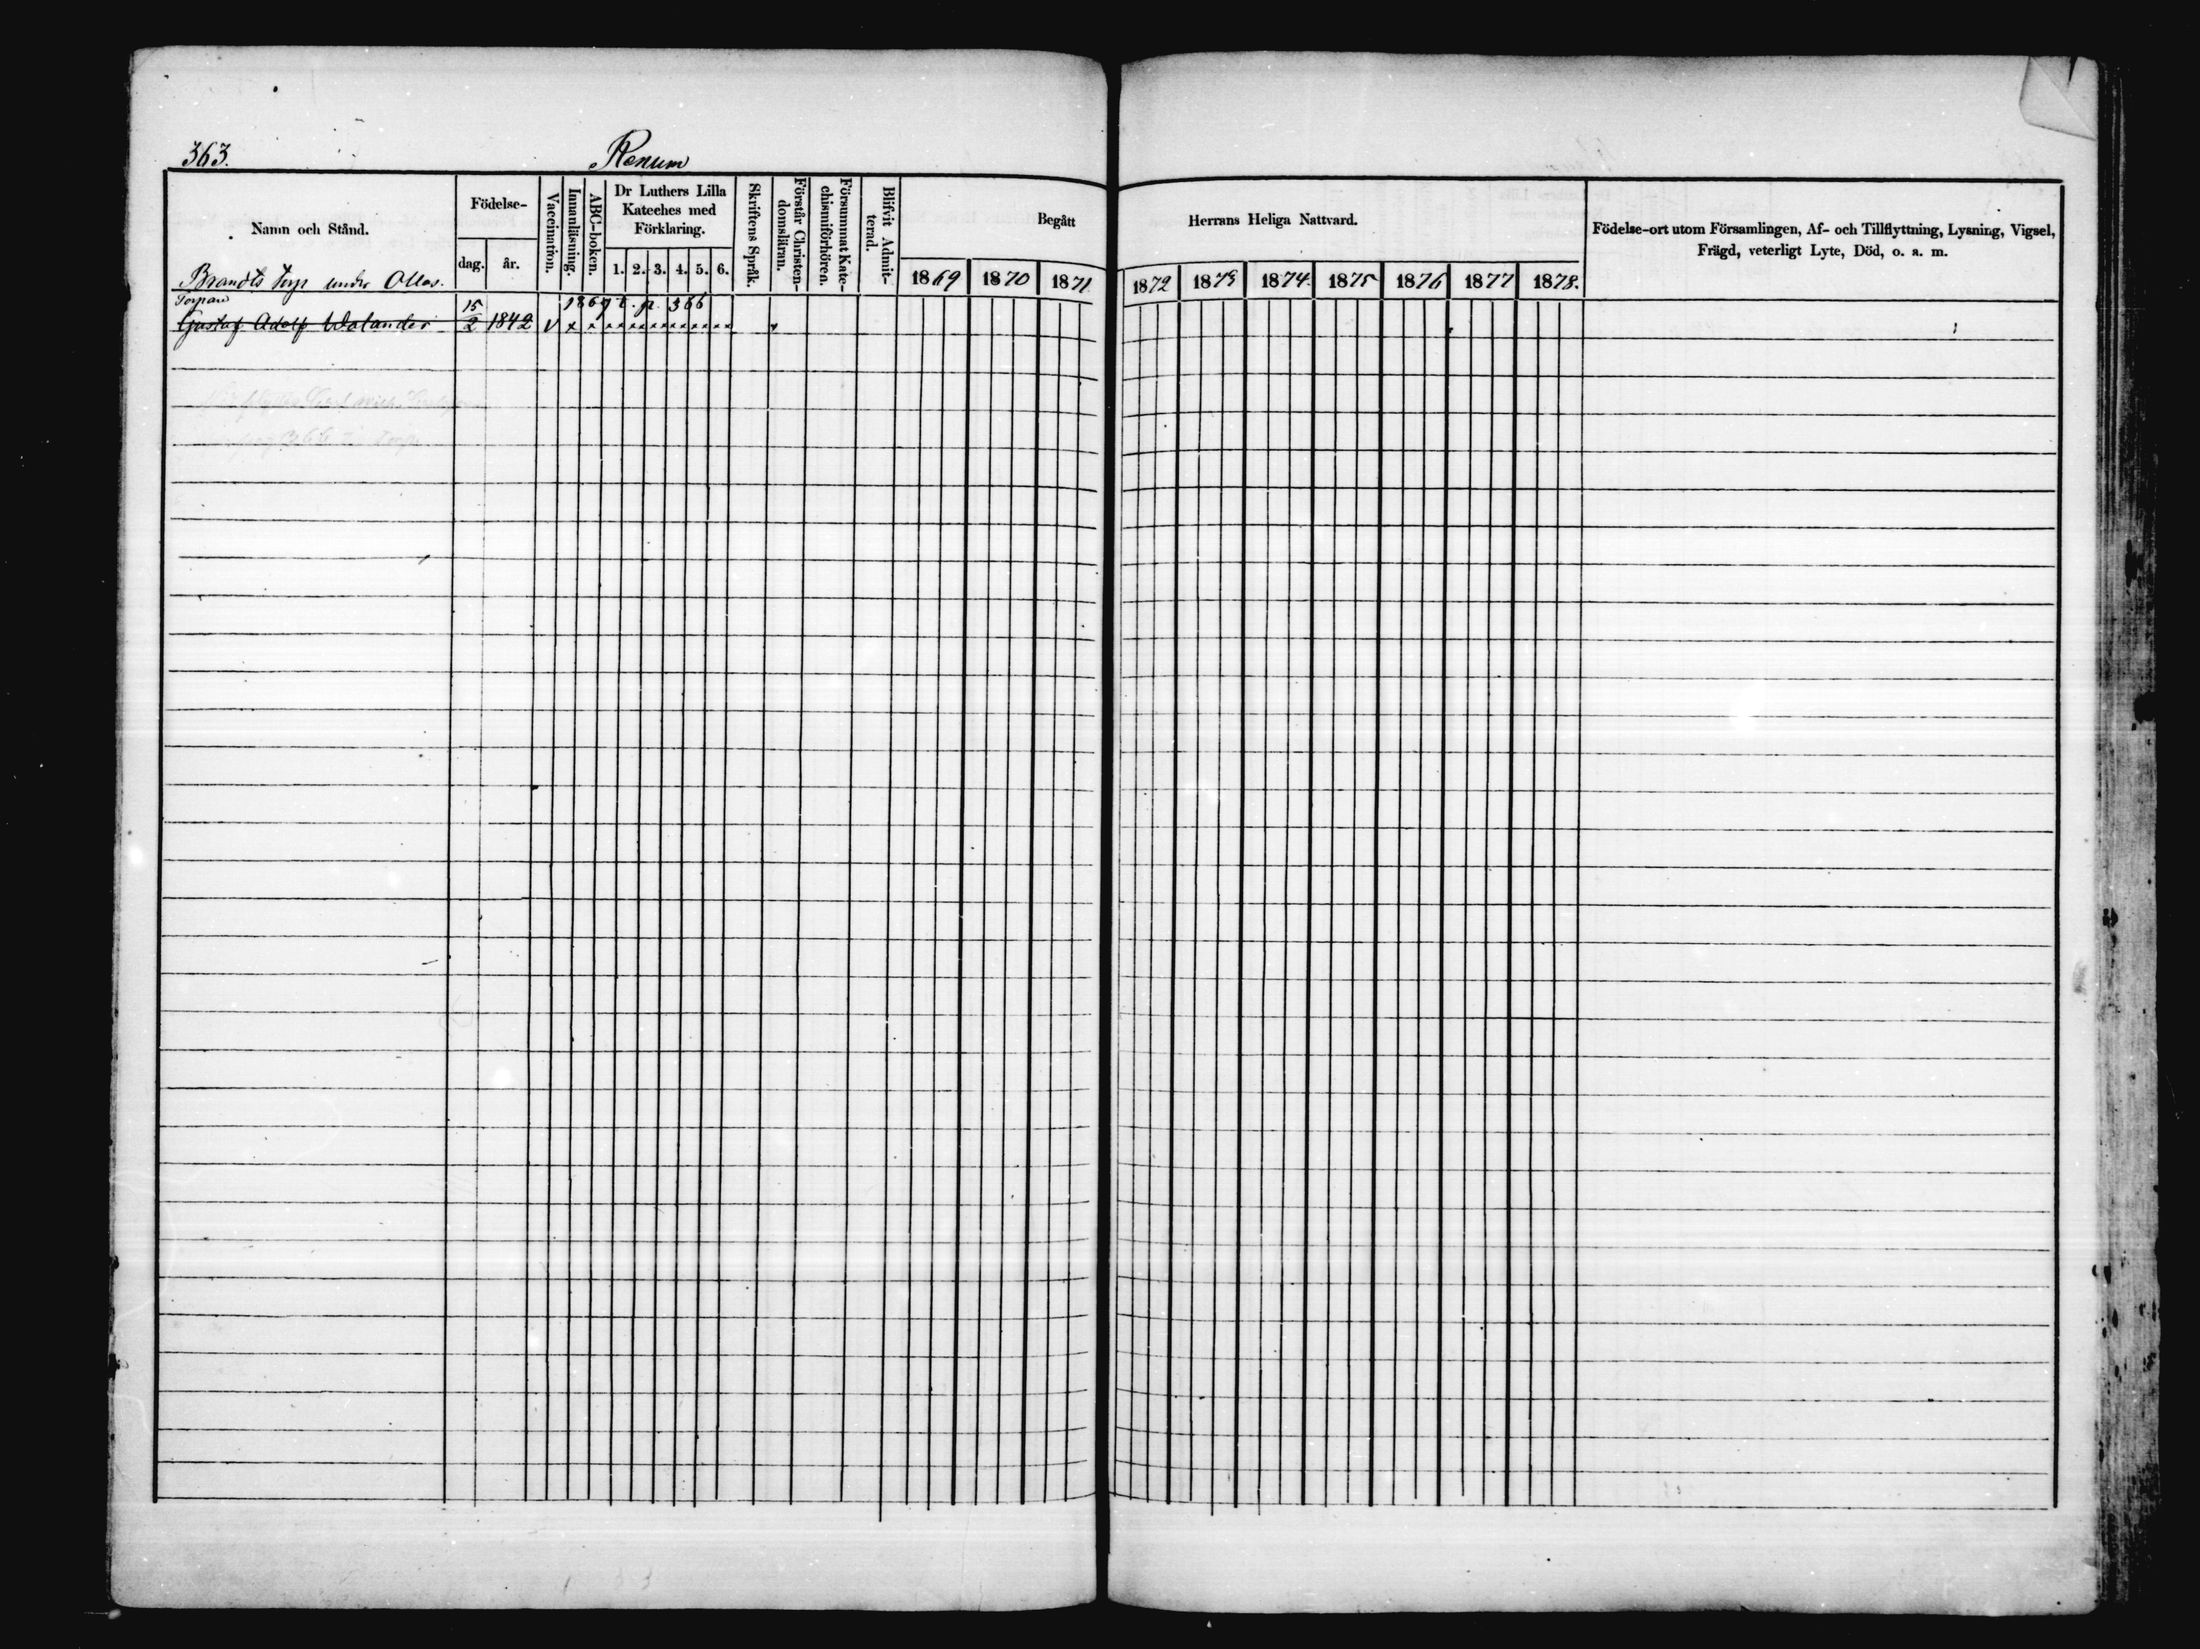 363.
Rænum
Namn och Stånd.
Födelse-
dag.
år.
Vaccination.
Innanläsning.
ABC-boken.
Dr Luthers Lilla
Kateches med
Förklaring.
1. 2. 3. 4. 5. 6.
Skriftens Språk.
Förstår Christen-
domsläran.
Försummat Kate-
chismiförhören.
Blifvit Admit-
terad.
Begått
Herrans Heliga Nattvard.
1869 1870 1871 1872 1873 1874. 1875 1876 1877 1878.
Födelse-ort utom Församlingen, Af- och Tillflyttning, Lysning, Vigsel,
Frägd, veterligt Lyte, Död, o. a. m.
Brandts torp under Ollas.
Torparen
1869 t. p. 366
Gustaf Adolf Walander 15/2 1842 v x x x x x x x x x x x x x x